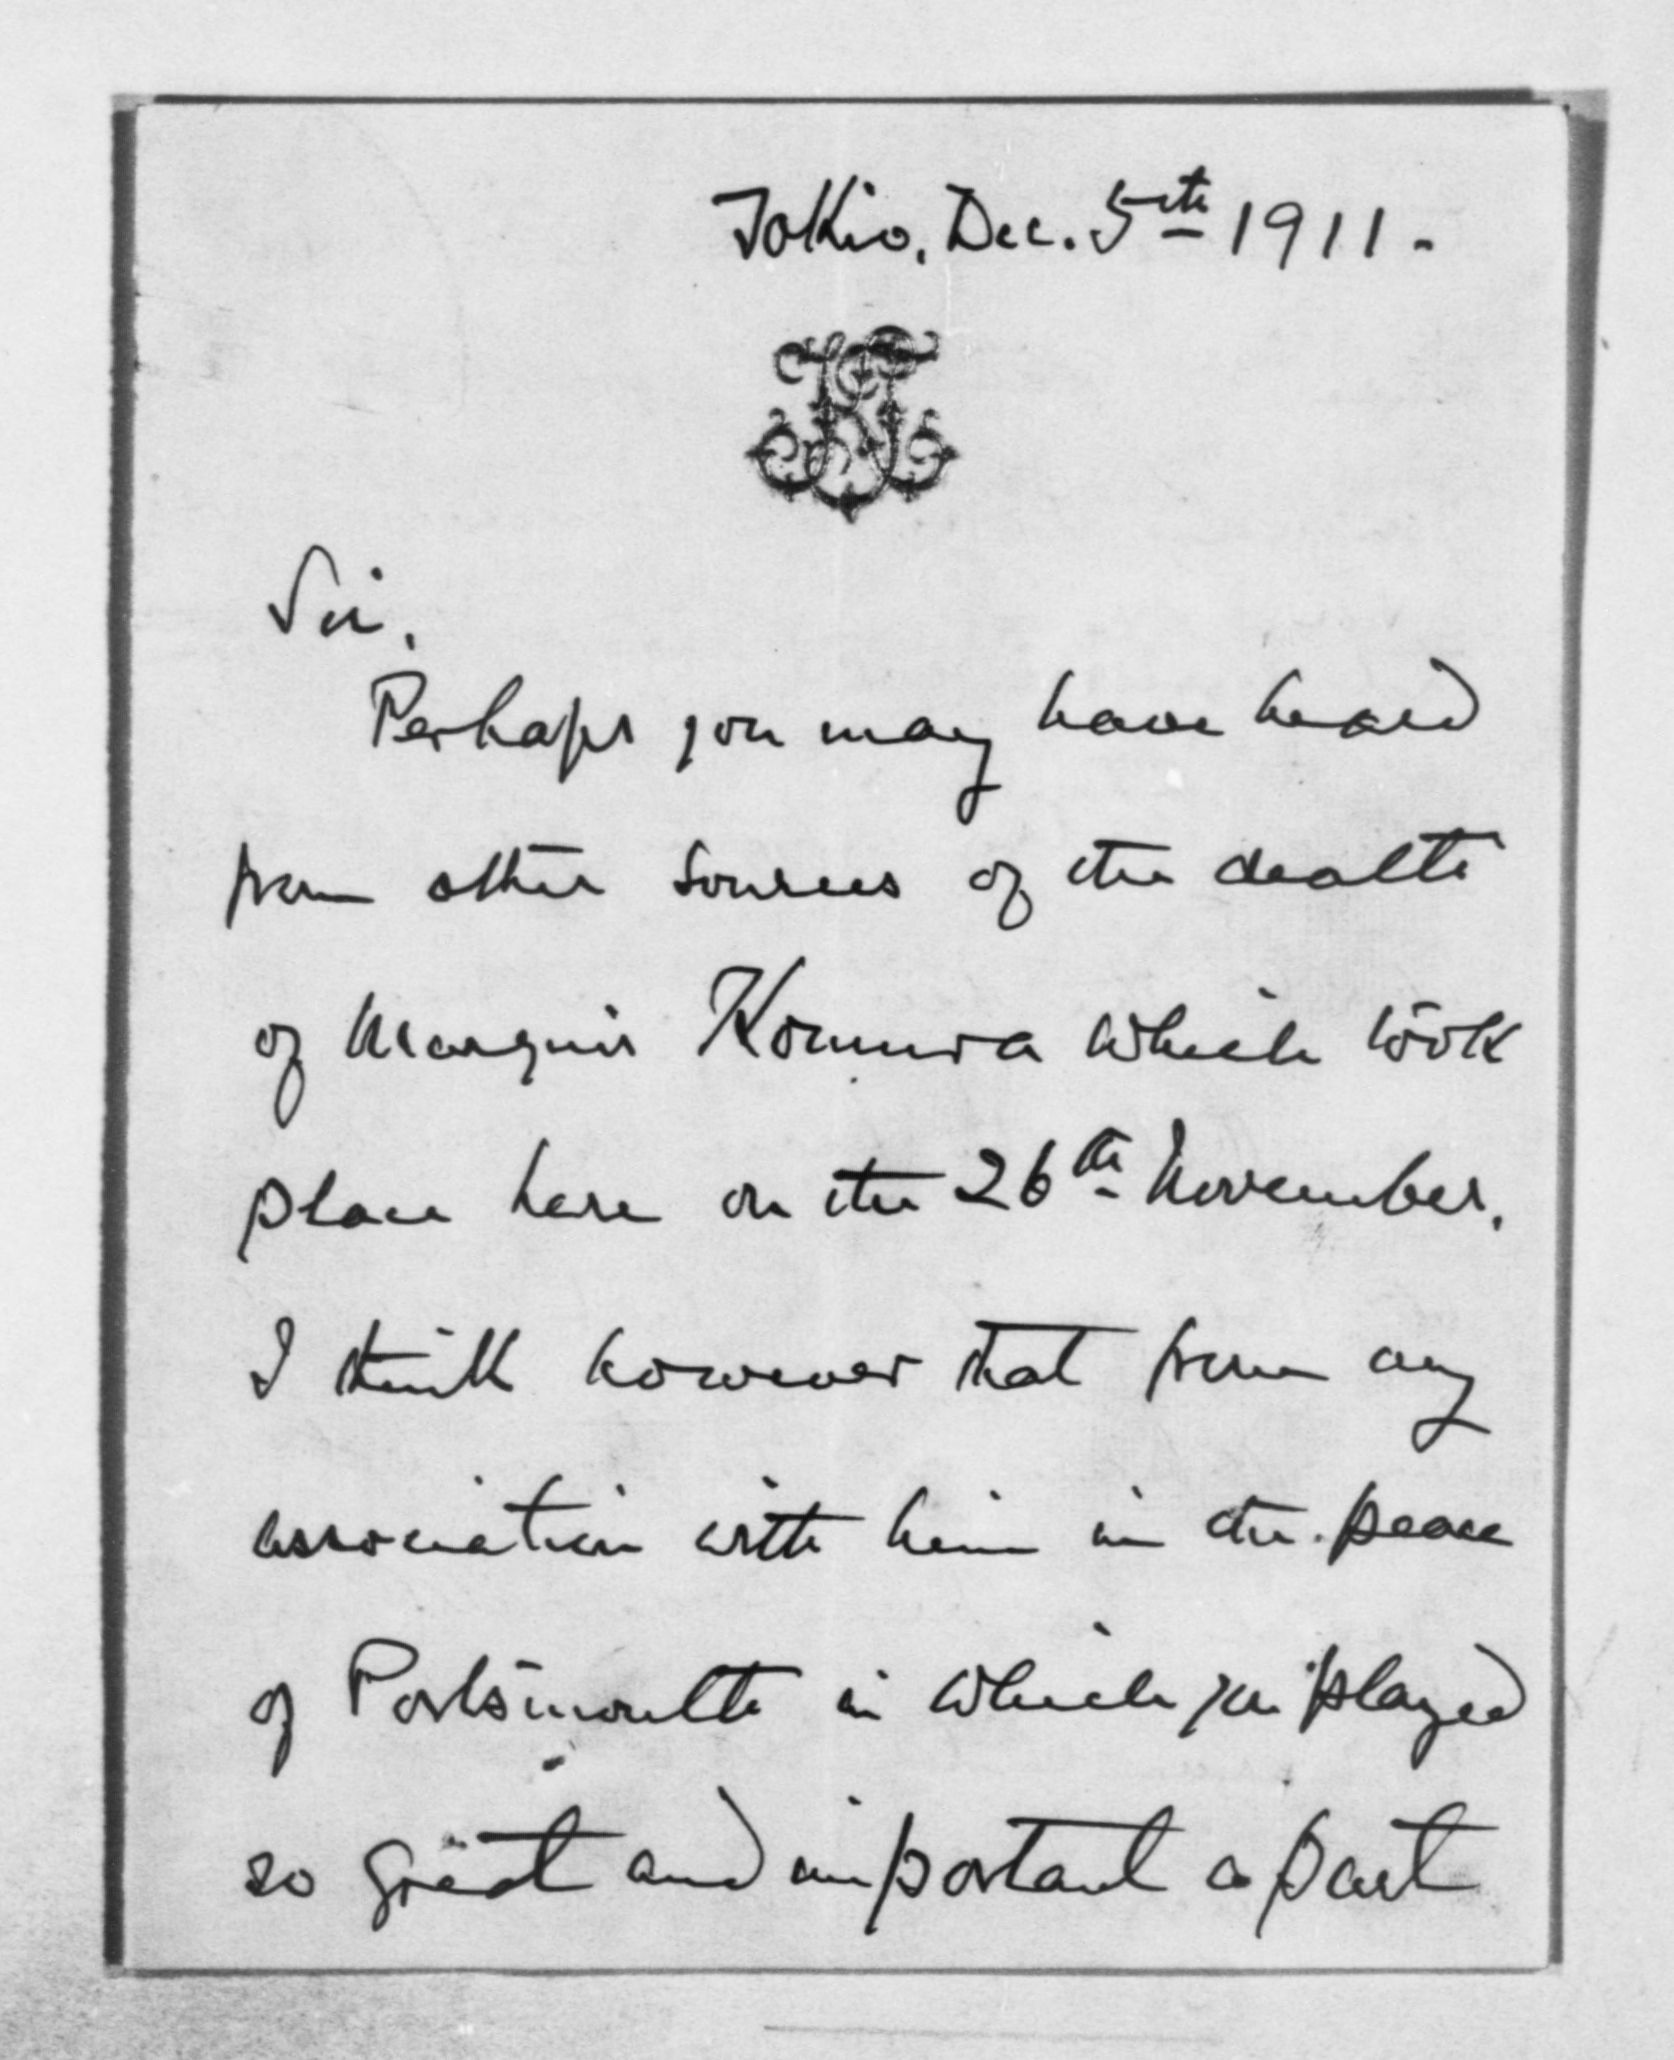 Tokio, Dec. 5th 1911.
Sir,
Perhaps you may have heard
from other sources of the death
of Marquis Komura which took
place here on the 26th November.
I think however that from my
association with him in the peace
of Portsmouth in which you played
so great and important a part